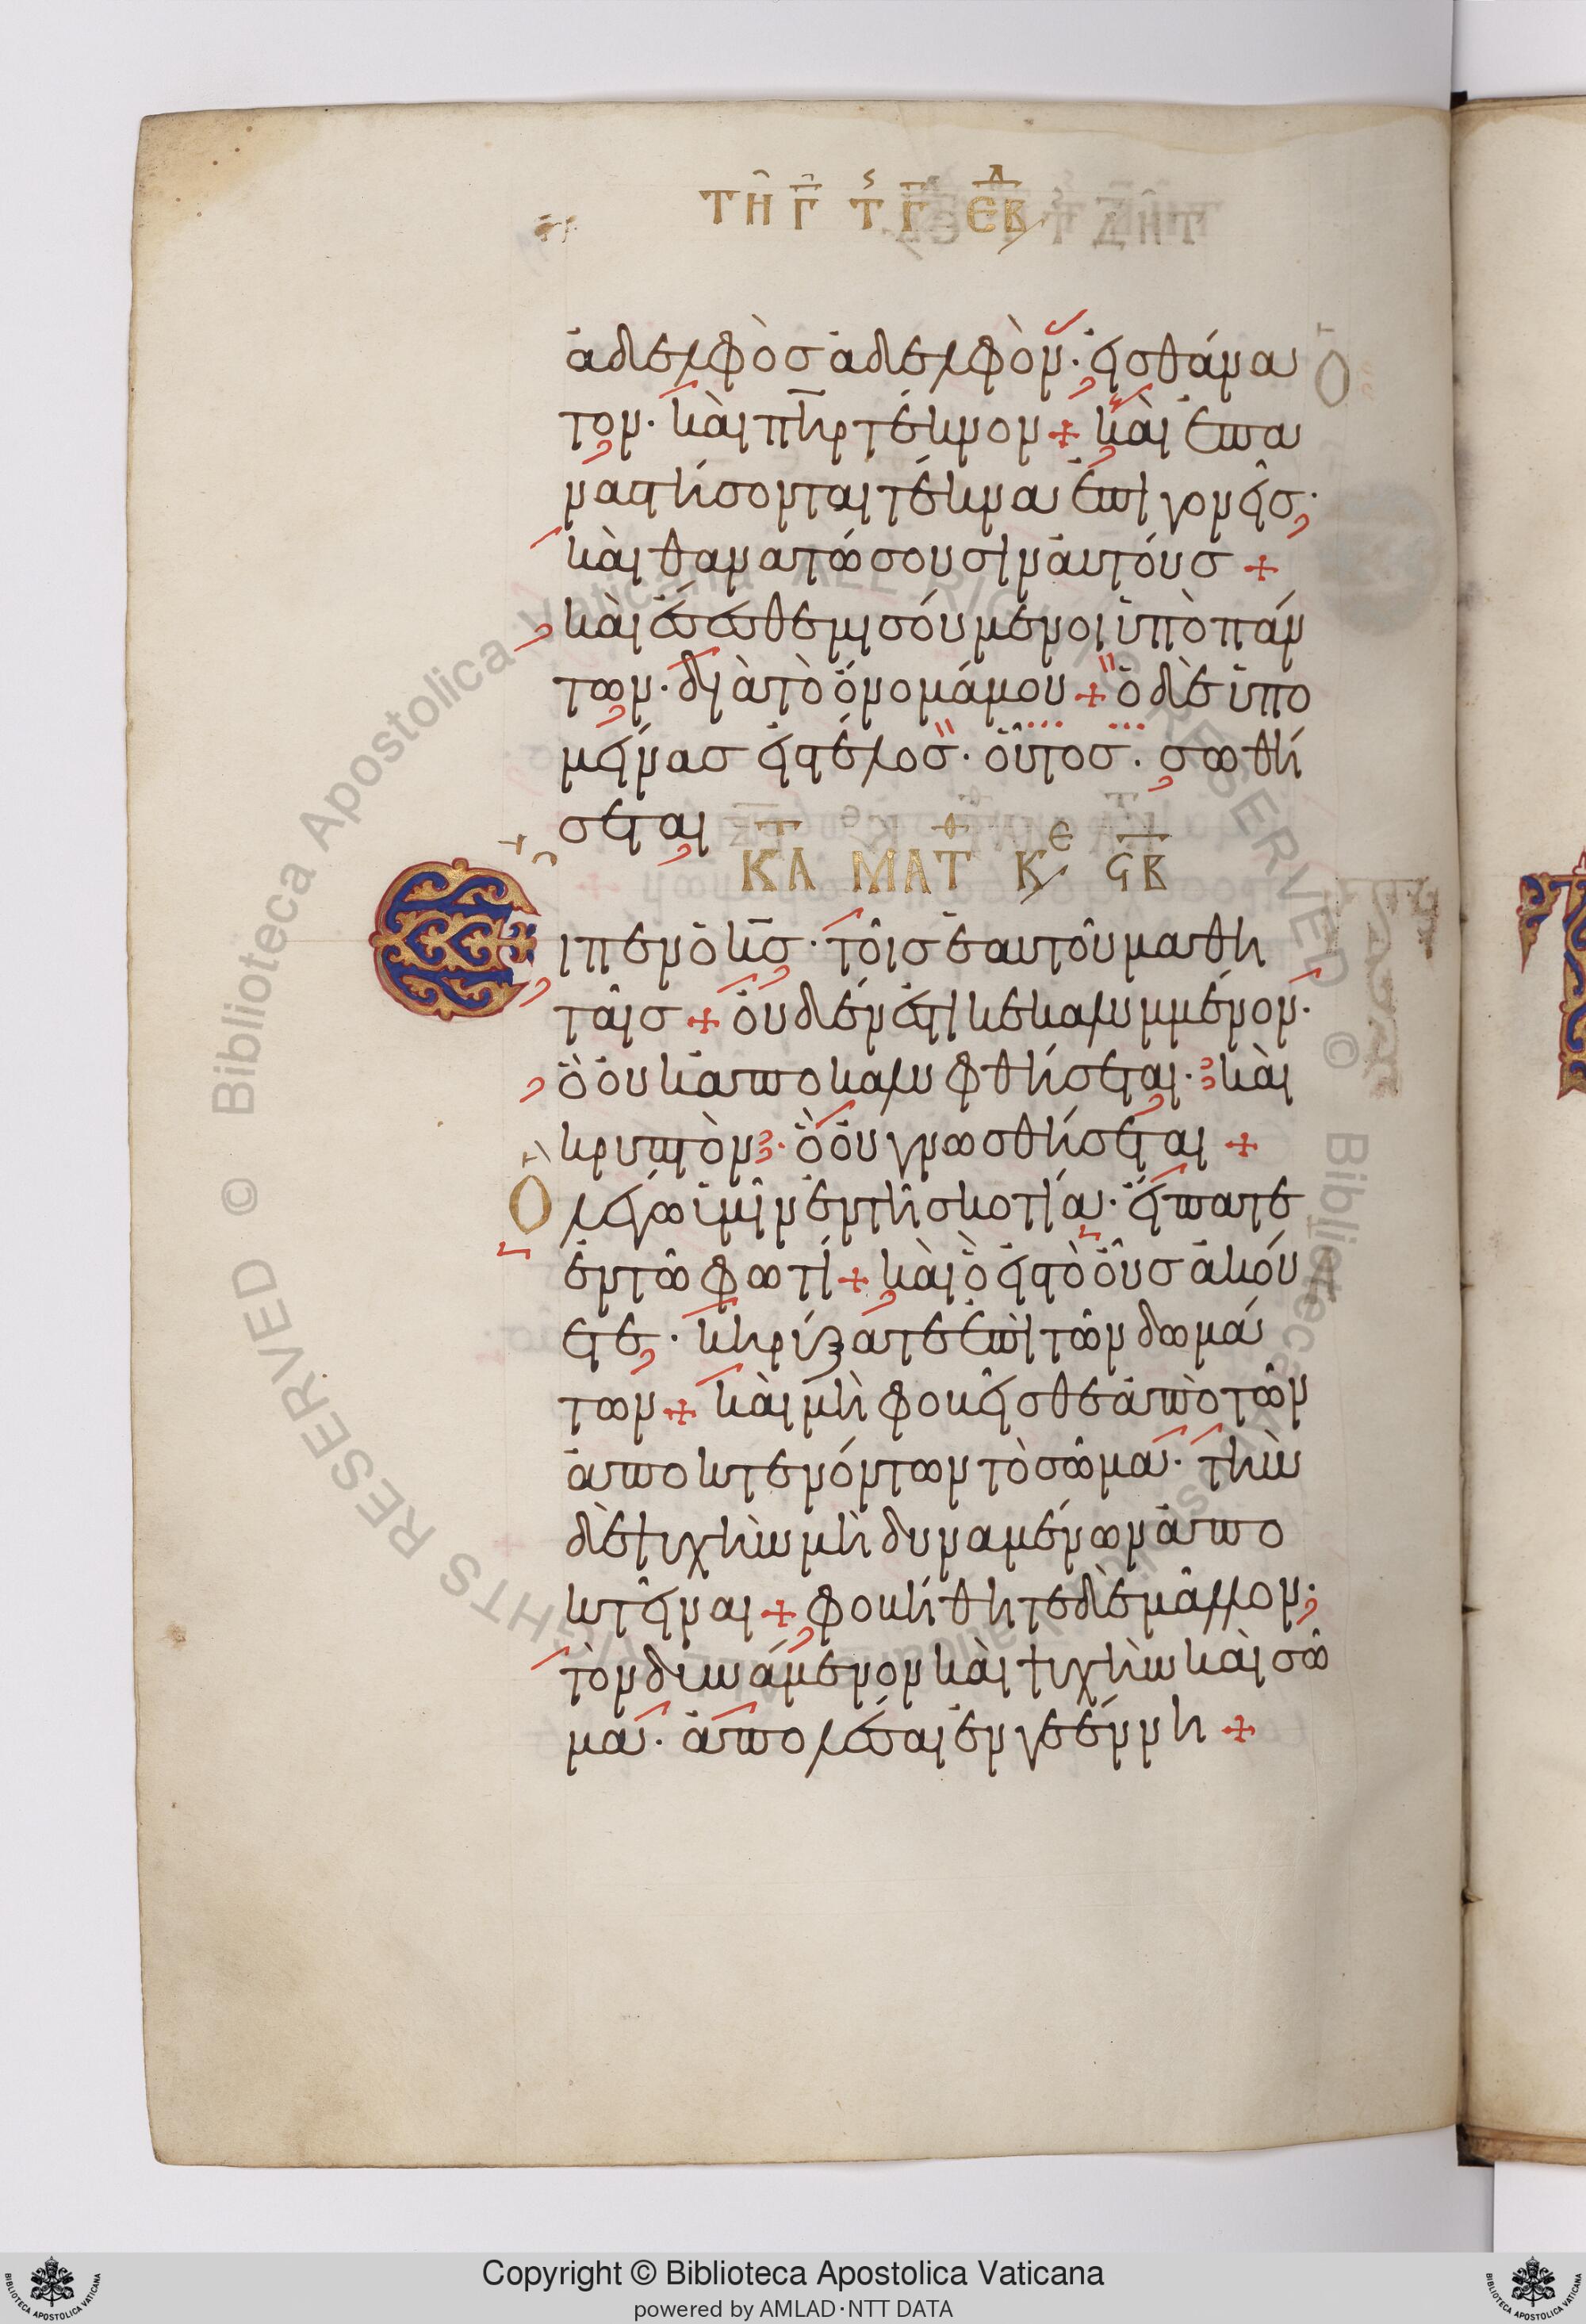 ΤΗ Γ Τ Γ ΕΒΔ
ἀδελφὸσ ἀδελφὸν· εἰσ θάνα
τον· καὶ πηρ τέκνον + καὶ ἐπα
ναστήσονται τέκνα ἐπὶ γονεῖσ·
καὶ θανατώσουσιν ἀυτόυσ +
καὶ ἔσεσθε μισόυμενοι ὑπὸ πάν
των· διὰ τὸ ὄνομά μου + ὁ δὲ ὑπο
μείνασ εἰσ τέλοσ· οὗτοσ· σωθή
σεται
ΚΑ ΜΑΤΘ ΚΕ ϚΒ
Ειπεν ὁ κσ· τοῖσ ἑαυτοῦ μαθη
ταῖσ + ὀυδέν ἐστι κεκαλυμμένον·
ὃ ὀυκ ἀποκαλυφθήσεται· καὶ
κρυπτὸν· ὃ ὀυ γνωσθήσεται +
Ὃ λέγω ὑμῖν ἐν τῆ σκοτία· ἔιπατε
ἐν τῶ φωτί + καὶ ὃ εἰσ τὸ ὀῦσ ἀκού
ετε· κηρύξατε ἐπὶ τῶν δωμά
των + καὶ μὴ φοβεῖσθε ἀπὸ τῶν
ἀποκτενόντων τὸ σῶμα· τὴν
δὲ ψυχὴν μὴ δυναμένων ἀπο
κτεῖναι + φοβήθητε δὲ μᾶλλον·
τὸν δυνάμενον καὶ ψυχὴν καὶ σῶ
μα· ἀπολέσαι ἐν γεέννη +
Copyright © Biblioteca Apostolica Vaticana
powered by AMLAD·NTT DATA